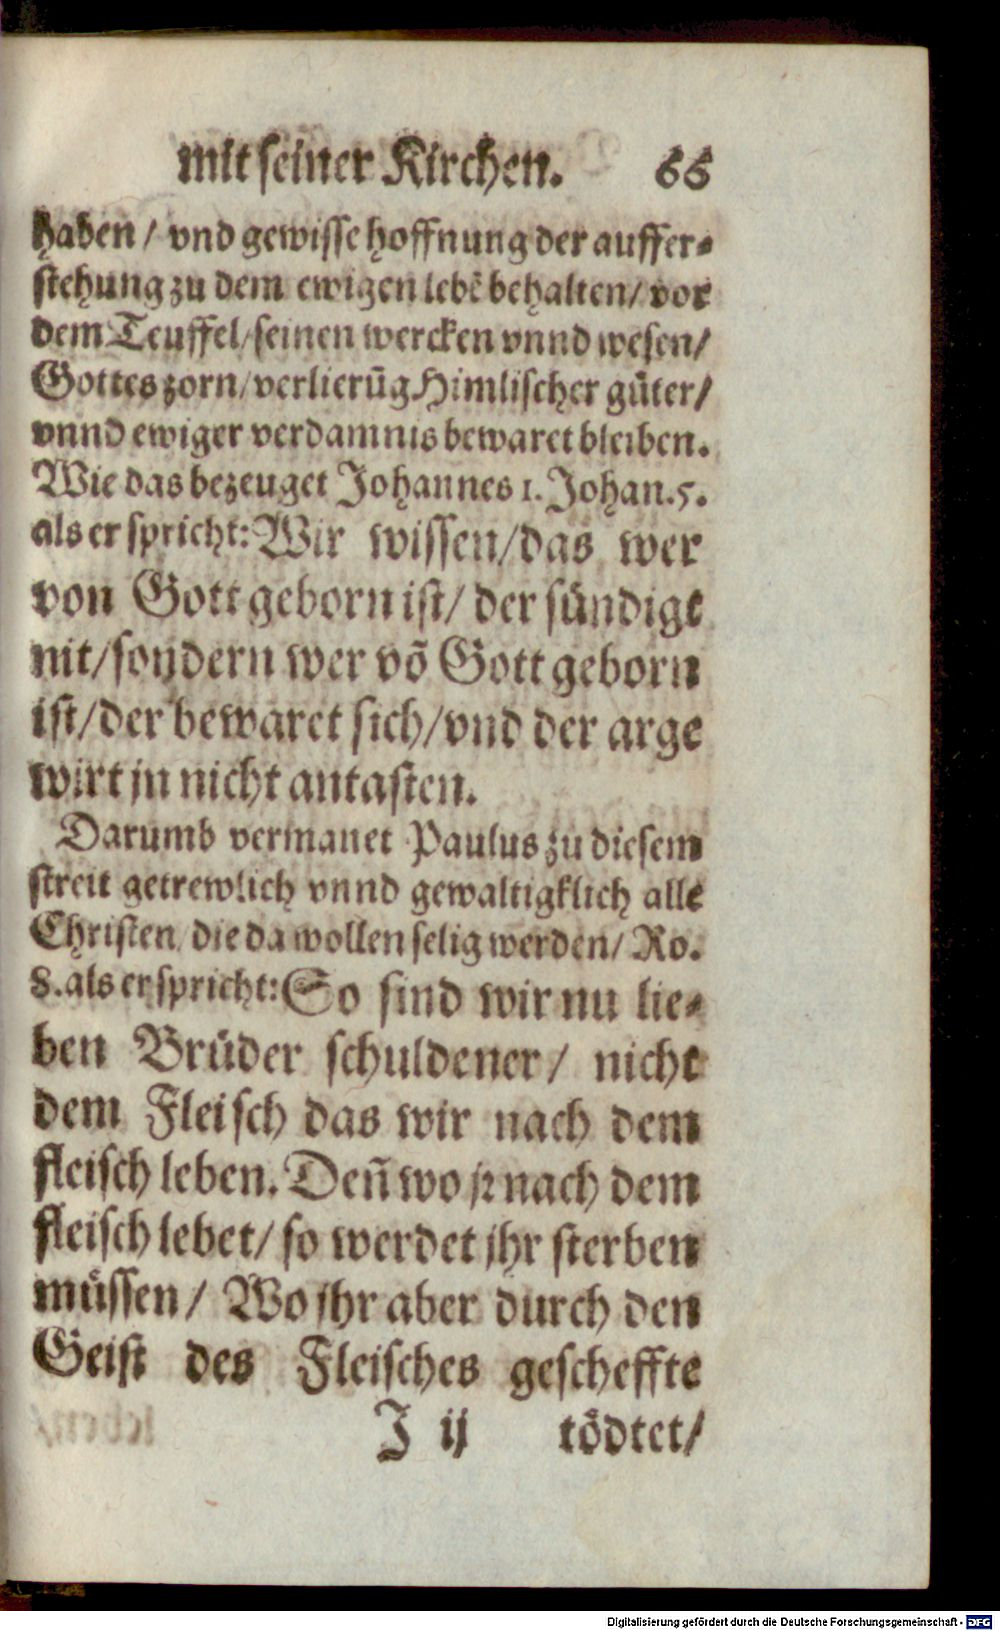 mit seiner Kirchen. 66
haben / vnd gewisse hoffnung der auffer-
stehung zu dem ewigen lebẽ behalten/ vor
dem Teuffel/ seinen wercken vnnd wesen/
Gottes zorn/ verlierũg Himlischer güter/
vnnd ewiger verdamnis bewaret bleiben.
Wie das bezeuget Johannes 1. Johan. 5.
als er spricht: Wir wissen/ das wer
von Gott geborn ist/ der sündigt
nit/ sondern wer võ Gott geborn
ist/ der bewaret sich/ vnd der arge
wirt jn nicht antasten.
Darumb vermanet Paulus zu diesem
streit getrewlich vnnd gewaltigklich alle
Christen/ die da wollen selig werden/ Ro.
8. als er spricht: So sind wir nu lie-
ben Brüder schuldener / nicht
dem Fleisch das wir nach dem
fleisch leben. Deñ wo jr nach dem
fleisch lebet/ so werdet jhr sterben
müssen / Wo jhr aber durch den
Geist des Fleisches gescheffte
J ij tödtet/
Digitalisierung gefördert durch die Deutsche Forschungsgemeinschaft - DFG